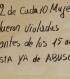 2 de Cada 10 Muje
fueron violadas
antes de los 15 a
STA YA de ABUSO